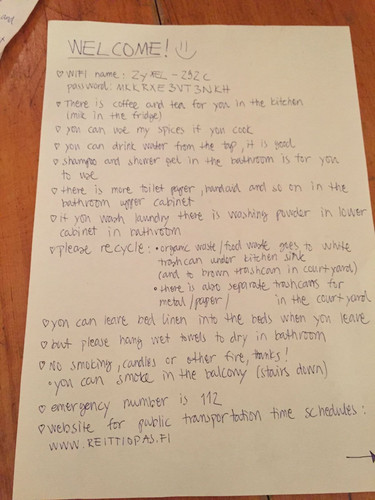 WELCOME! ☺
♡ WIFI name: ZyXEL-292C
password: MKKRXE3VT3NKH
♡ There is coffee and tea for you in the kitchen
(milk in the fridge)
♡ you can use my spices if you cook
♡ you can drink water from the tap, it is good
♡ shampoo and shower gel in the bathroom is for you
to use
♡ there is more toilet paper, handsoap and so on in the
bathroom upper cabinet
♡ if you wash laundry there is washing powder in lower
cabinet in bathroom
♡ please recycle: • organic waste/food waste goes to white
trashcan under kitchen sink
(and to brown trashcan in courtyard)
• there is also separate trashcans for
metal/paper/ in the courtyard
♡ you can leave bed linen into the beds when you leave
♡ but please hang wet towels to dry in bathroom
♡ No smoking, candles or other fire, thanks!
• you can smoke in the balcony (stairs down)
♡ emergency number is 112
♡ website for public transportation time schedules:
WWW.REITTIOPAS.FI
→